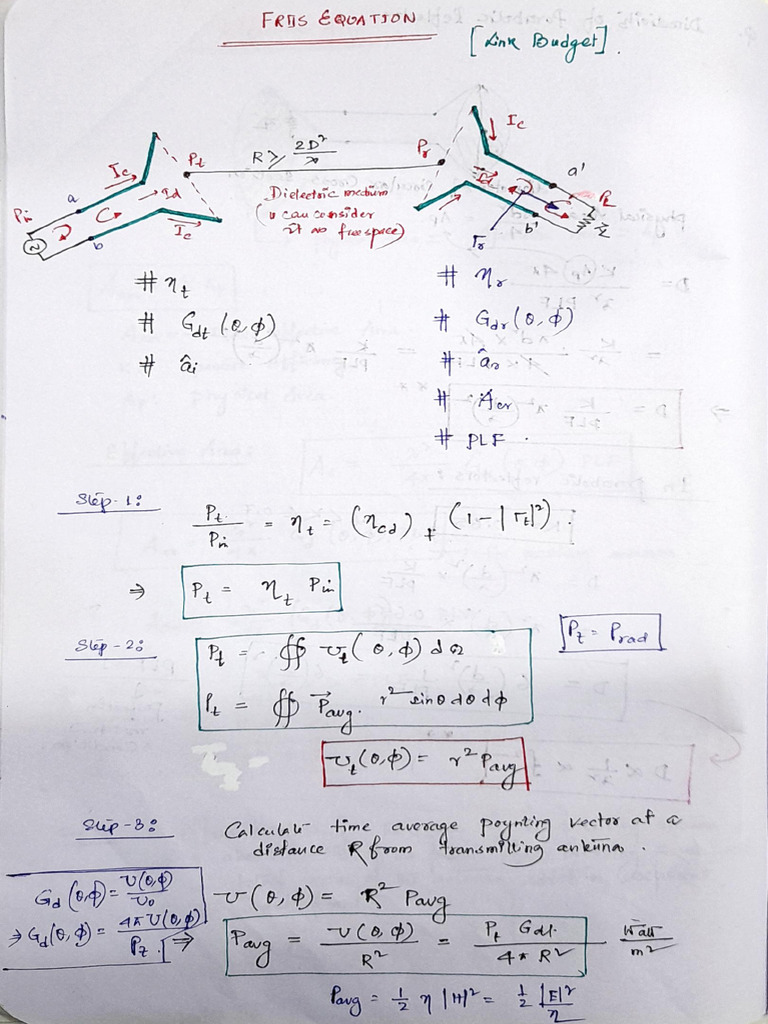 FRIIS EQUATION
[Link Budget].
Ic
Pt
R ≥ 2D²/λ
Pr
Ic
a'
Ic
Id
a
Pin
c
Dielectric medium
(u can consider
it as free space)
Id
b
Ic
Γr
b'
# ηt
# Gdt (θ,φ)
# âi
# ηr
# Gdr (θ,φ)
# âr
# Aer
# PLF.
Step-1:
Pt/Pin = ηt = (ηcd)t (1-|Γt|²).
⇒ Pt = ηt Pin
Step-2:
Pt = ∯ Ut(θ,φ) dΩ
Pt = Prad
Pt = ∯ P⃗avg. r² sinθ dθ dφ
Ut(θ,φ) = r² Pavg
Step-3:
Calculate time average poynting vector at a
distance R from transmitting antenna.
Gd(θ,φ) = U(θ,φ)/U0
⇒ Gd(θ,φ) = 4πU(θ,φ)/Pt.
U(θ,φ) = R² Pavg
⇒ Pavg = U(θ,φ)/R² = Pt Gdt/4πR² watt/m²
Pavg = ½ η |H|² = ½ |E|²/η